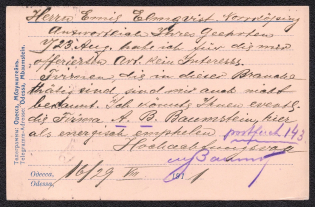 Herrn Emil Elmqvist. Norrköping
Antwortlich Ihres Geehrten
V23 Aug. habe ich für die mir
offerierten Art. kein Interesse.
Firmen, die in dieser Branche
thätig sind, sind mir auch nicht
bekannt. Ich könnte Ihnen event.
die Firma A. B. Baumstein, hier
als energisch empfehlen postfach 143
Hochachtungsvoll
Одесса.
Odessa. 16/29 VIII 1911
Телеграммы: Одесса, Абаумштейнъ.
Telegramm-Adresse: Odessa, Abaumstein.